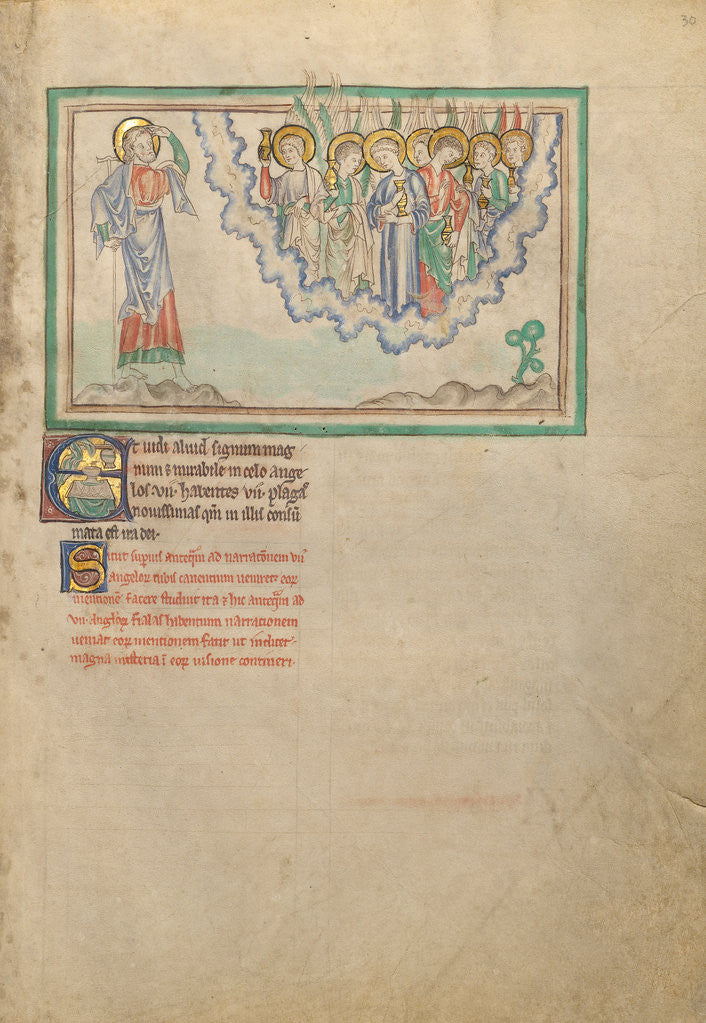 30
Et uidi aliud signum mag-
num & mirabile in celo ange-
los·vii·habentes vii· plagas
nouissimas qm̄ in illis consū
mata est ira dei·
Sicut superius anteq̄m ad narratōnem vii
angelor tubis canentium ueniret eor
mentionē facere studuit ita & hic anteq̄m ad
vii·anglor fialas habentum narrationem
ueniat eor mentionem facit ut indicet
magna misteria ī eor uisione contineri·